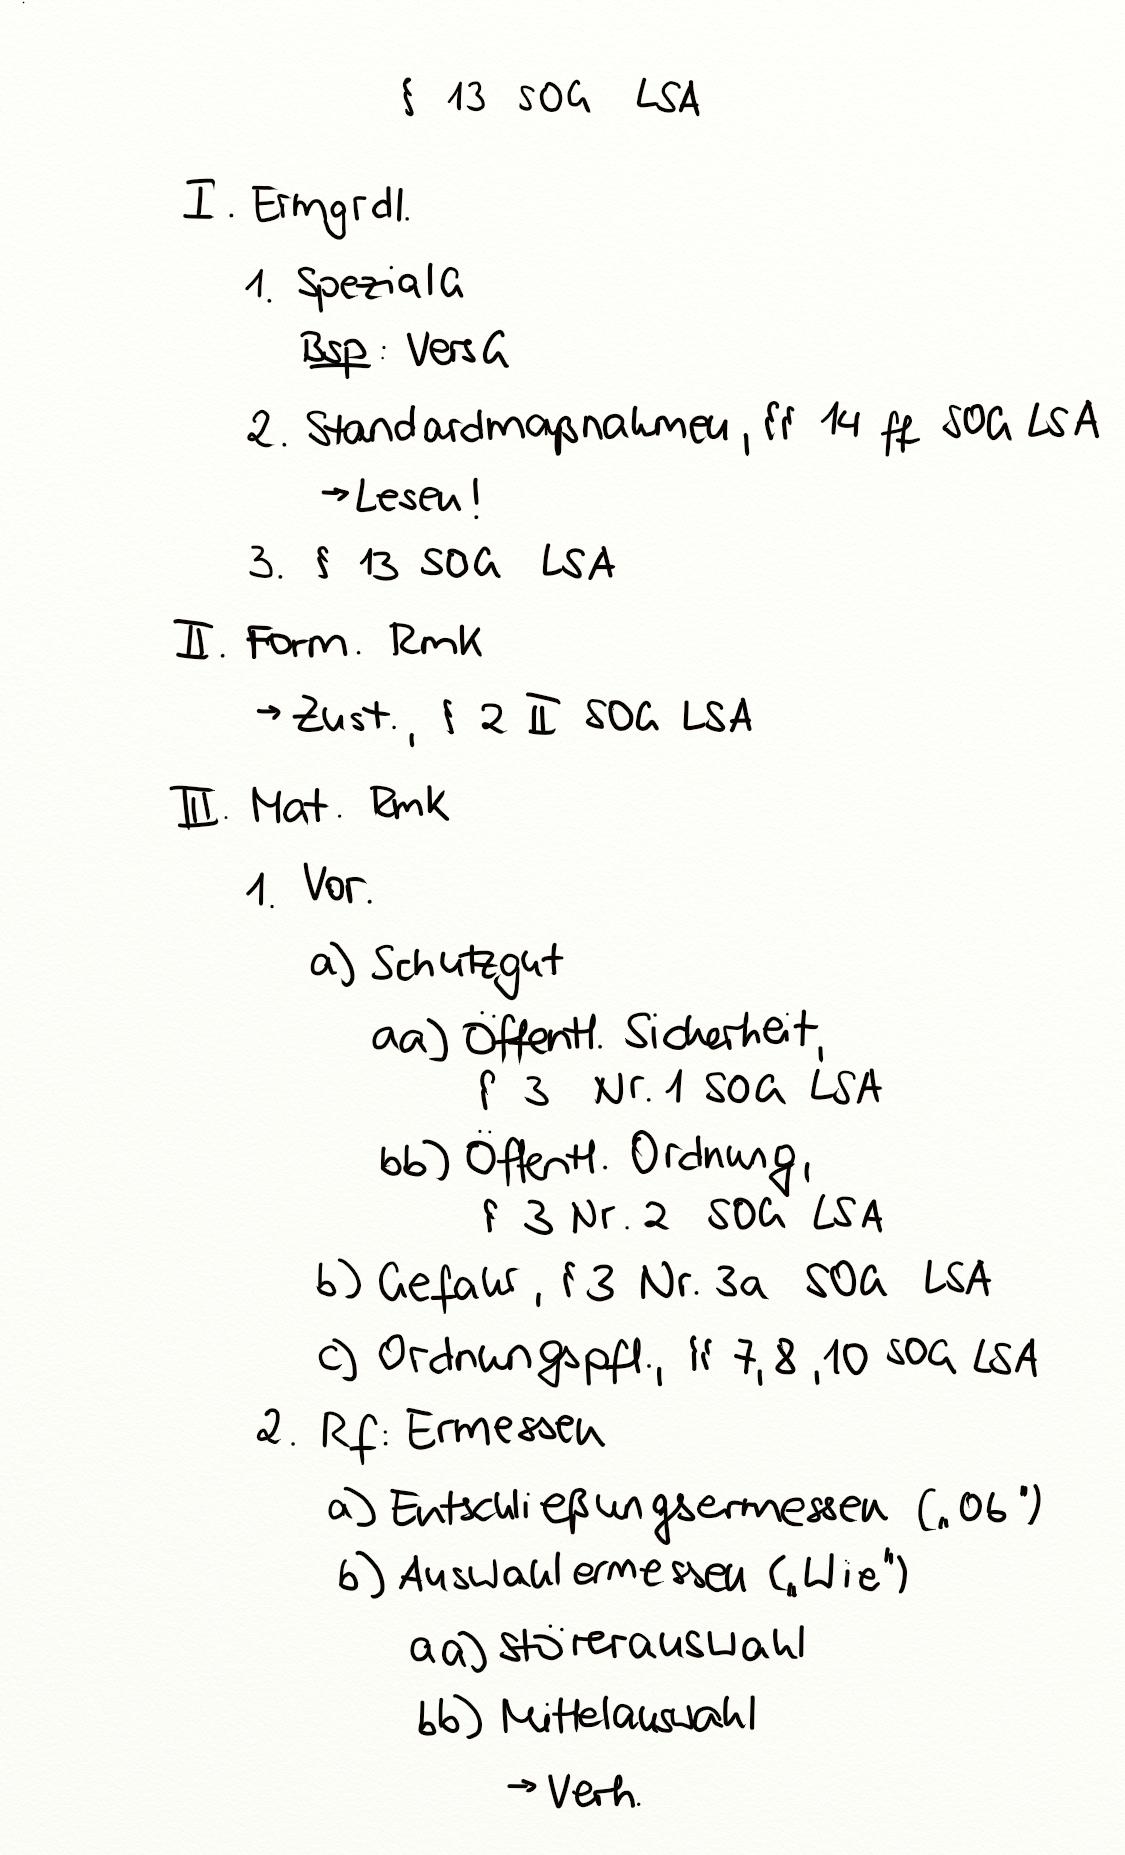 § 13 SOG LSA
I. Ermgrdl.
1. SpezialG
Bsp: VersG
2. Standardmaßnahmen, §§ 14 ff SOG LSA
→ Lesen!
3. § 13 SOG LSA
II. Form. Rmk
→ Zust., § 2 II SOG LSA
III. Mat. Rmk
1. Vor.
a) Schutzgut
aa) Öffentl. Sicherheit,
§ 3 Nr. 1 SOG LSA
bb) Öffentl. Ordnung,
§ 3 Nr. 2 SOG LSA
b) Gefahr, § 3 Nr. 3a SOG LSA
c) Ordnungspfl., §§ 7, 8, 10 SOG LSA
2. Rf: Ermessen
a) Entschließungsermessen („Ob")
b) Auswahlermessen („Wie")
aa) Störerauswahl
bb) Mittelauswahl
→ Verh.